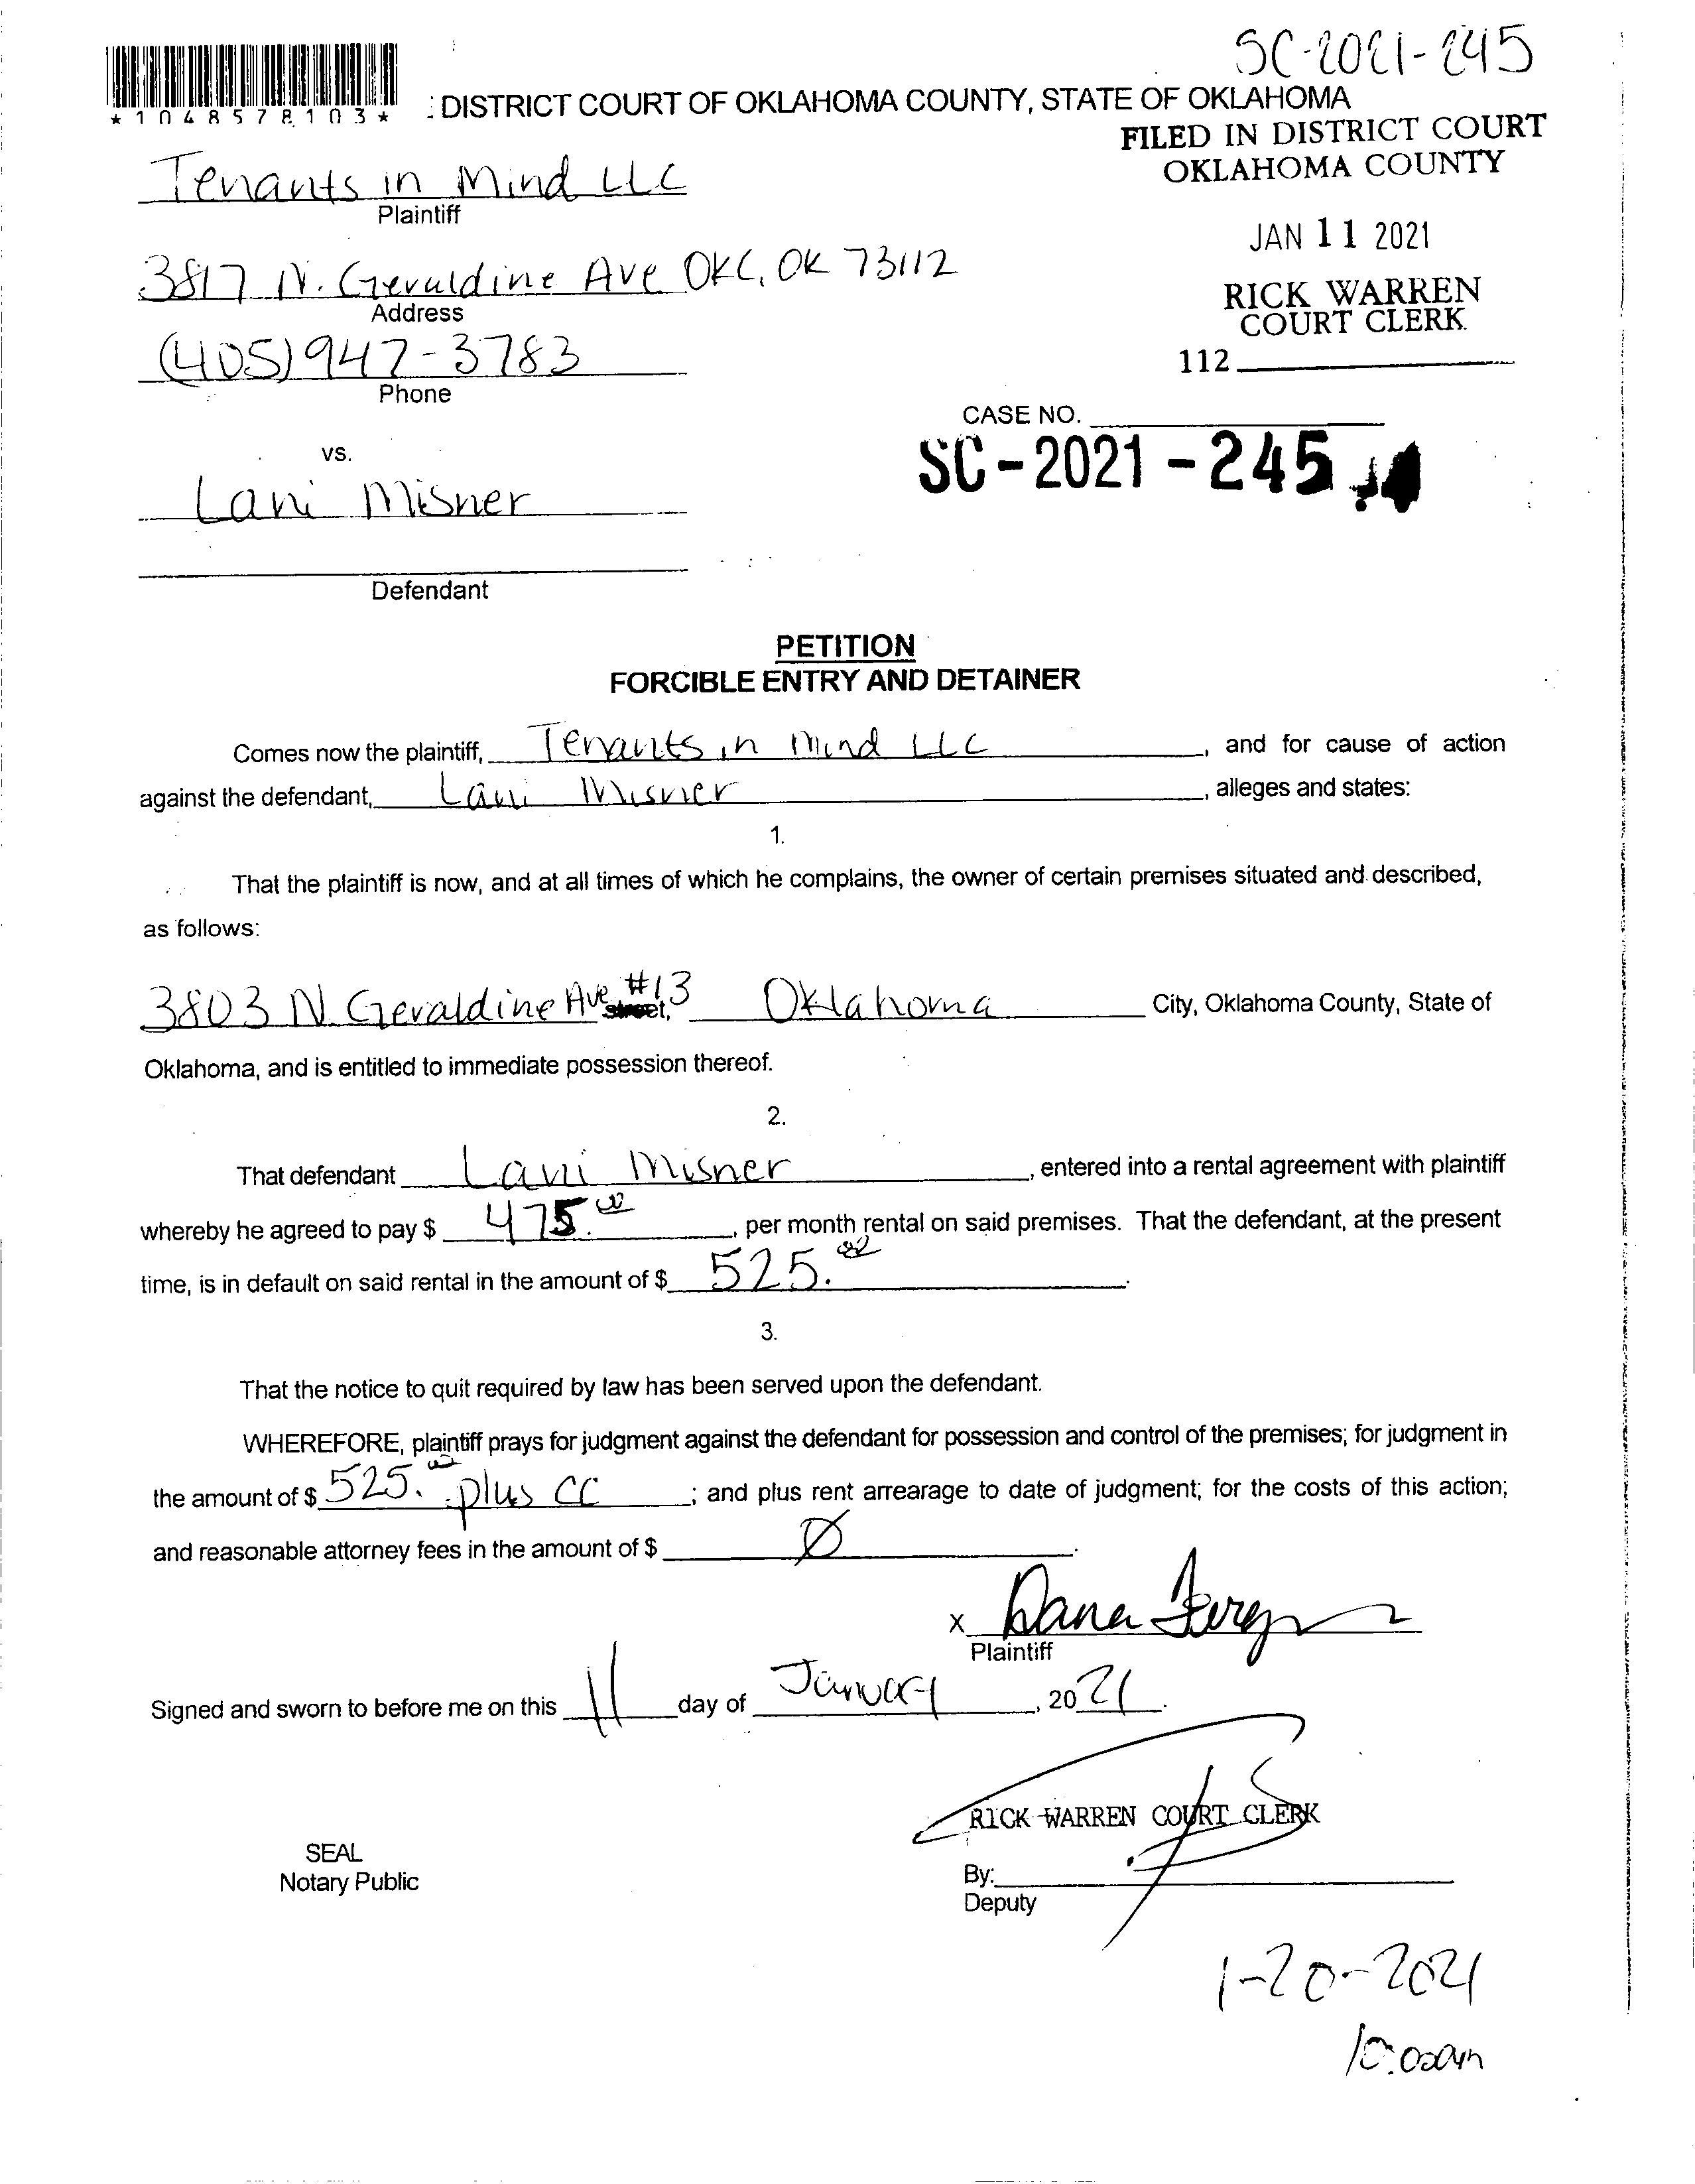 SC-2021-245
*1048578103*
: DISTRICT COURT OF OKLAHOMA COUNTY, STATE OF OKLAHOMA
FILED IN DISTRICT COURT
OKLAHOMA COUNTY
Tenants in Mind LLC
Plaintiff
JAN 11 2021
3817 N. Geraldine Ave OKC, OK 73112
Address
RICK WARREN
COURT CLERK
(405) 947-3783
Phone
112
CASE NO.
SC-2021-245
vs.
Lani Misner
Defendant
PETITION
FORCIBLE ENTRY AND DETAINER
Comes now the plaintiff, Tenants in Mind LLC, and for cause of action
against the defendant, Lani Misner, alleges and states:
1.
That the plaintiff is now, and at all times of which he complains, the owner of certain premises situated and described,
as follows:
3803 N. Geraldine Ave #13 street, Oklahoma City, Oklahoma County, State of
Oklahoma, and is entitled to immediate possession thereof.
2.
That defendant Lani Misner, entered into a rental agreement with plaintiff
whereby he agreed to pay $ 475.00, per month rental on said premises. That the defendant, at the present
time, is in default on said rental in the amount of $ 525.00.
3.
That the notice to quit required by law has been served upon the defendant.
WHEREFORE, plaintiff prays for judgment against the defendant for possession and control of the premises; for judgment in
the amount of $ 525.00 plus CC; and plus rent arrearage to date of judgment; for the costs of this action;
and reasonable attorney fees in the amount of $ Ø.
x Dana
Plaintiff
Signed and sworn to before me on this 11 day of January, 2021.
RICK WARREN COURT CLERK
SEAL
Notary Public
By:
Deputy
1-20-2021
10:00am